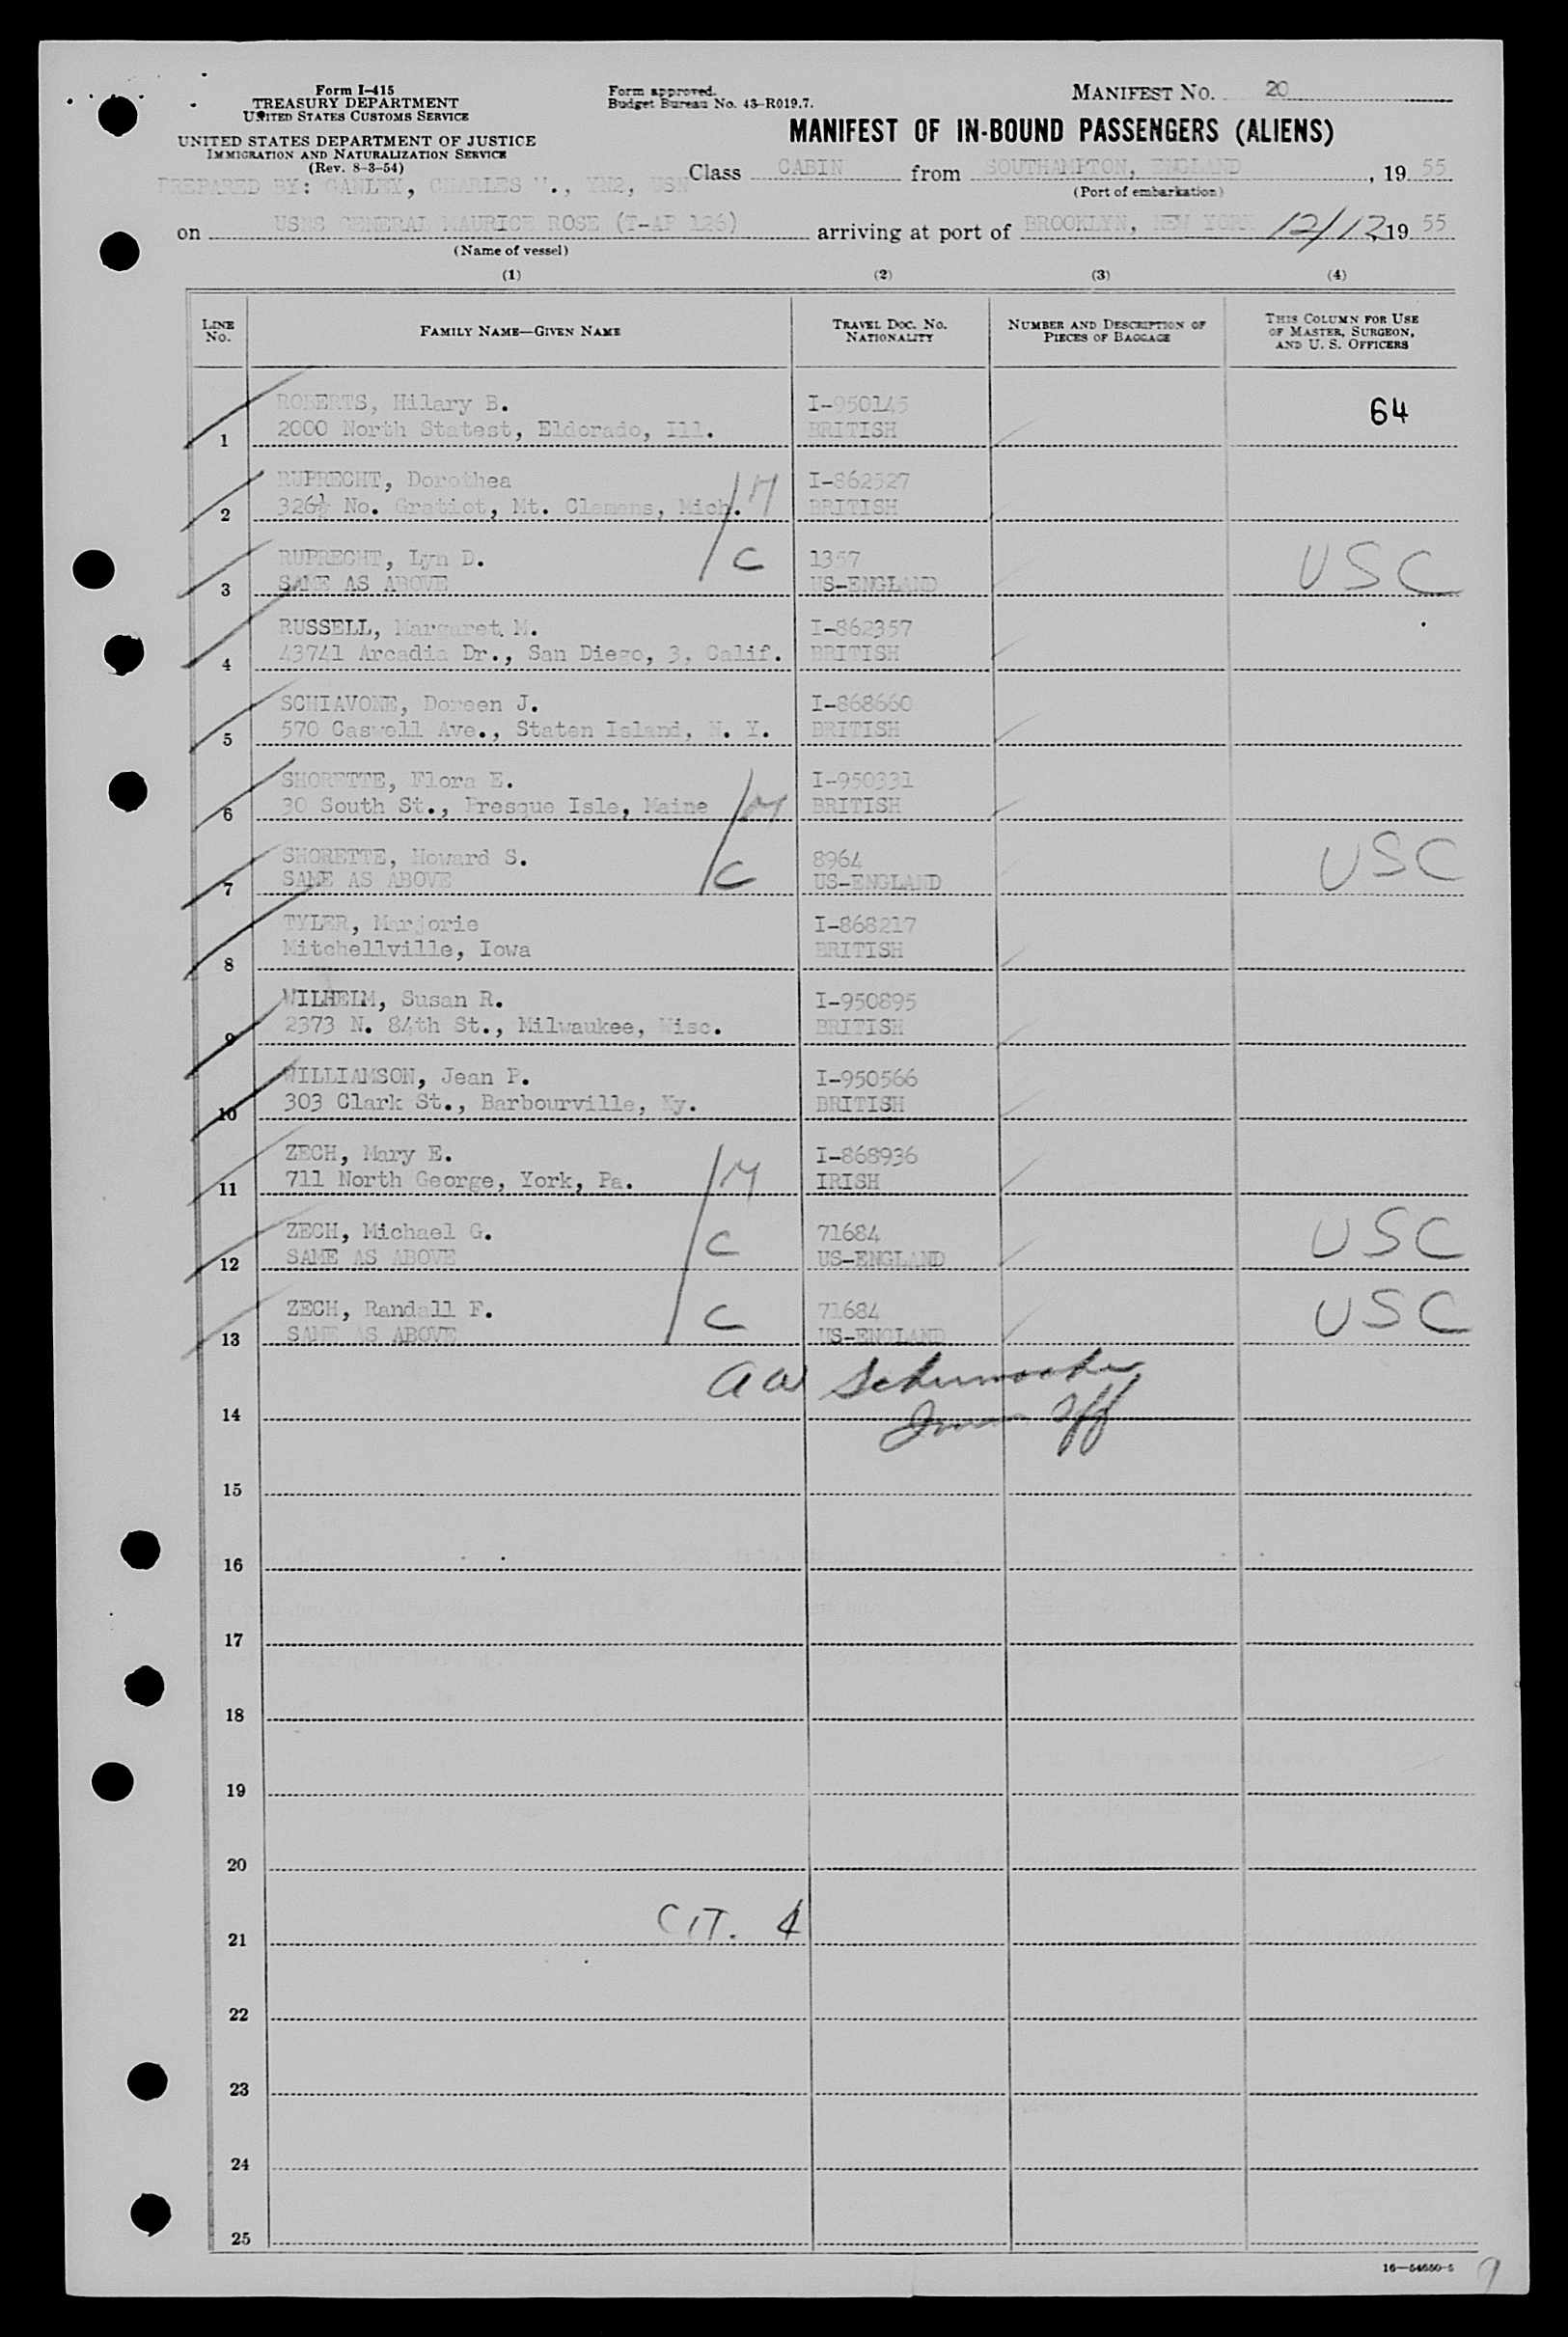 Form I-415
TREASURY DEPARTMENT
UNITED STATES CUSTOMS SERVICE
UNITED STATES DEPARTMENT OF JUSTICE
IMMIGRATION AND NATURALIZATION SERVICE
(Rev. 8-3-54)
Form approved.
Budget Bureau No. 43-R019.7.
MANIFEST NO. 20
MANIFEST OF IN-BOUND PASSENGERS (ALIENS)
PREPARED BY: GANLEY, CHARLES W., YN2, USN
Class CABIN from SOUTHAMPTON, ENGLAND, 19 55
(Port of embarkation)
on USNS GENERAL MAURICE ROSE (T-AP 126) arriving at port of BROOKLYN, NEW YORK 12/12 19 55
(Name of vessel)
(1) (2) (3) (4)
LINE NO.
FAMILY NAME—GIVEN NAME
TRAVEL DOC. NO. NATIONALITY
NUMBER AND DESCRIPTION OF PIECES OF BAGGAGE
THIS COLUMN FOR USE OF MASTER, SURGEON, AND U. S. OFFICERS
ROBERTS, Hilary B. I-950145 64
1 2000 North Statest, Eldorado, Ill. BRITISH
RUPRECHT, Dorothea I-862327
2 326½ No. Gratiot, Mt. Clemens, Mich. M BRITISH
RUPRECHT, Lyn D. C 1357 USC
3 SAME AS ABOVE US-ENGLAND
RUSSELL, Margaret M. I-862357
4 43741 Arcadia Dr., San Diego, 3, Calif. BRITISH
SCHIAVONE, Doreen J. I-868660
5 570 Caswell Ave., Staten Island, N. Y. BRITISH
SHORETTE, Flora E. I-950331
6 30 South St., Presque Isle, Maine M BRITISH
SHORETTE, Howard S. 8964 USC
7 SAME AS ABOVE C US-ENGLAND
TYLER, Marjorie I-868217
8 Mitchellville, Iowa BRITISH
WILHELM, Susan R. I-950895
9 2373 N. 84th St., Milwaukee, Wisc. BRITISH
WILLIAMSON, Jean P. I-950566
10 303 Clark St., Barbourville, Ky. BRITISH
ZECH, Mary E. I-868936
11 711 North George, York, Pa. M IRISH
ZECH, Michael G. C 71684 USC
12 SAME AS ABOVE US-ENGLAND
ZECH, Randall F. C 71684 USC
13 SAME AS ABOVE US-ENGLAND
A W Schumacher
14 Imm Off
15
16
17
18
19
20
21 CIT. 4
22
23
24
25
16—54650-5
9